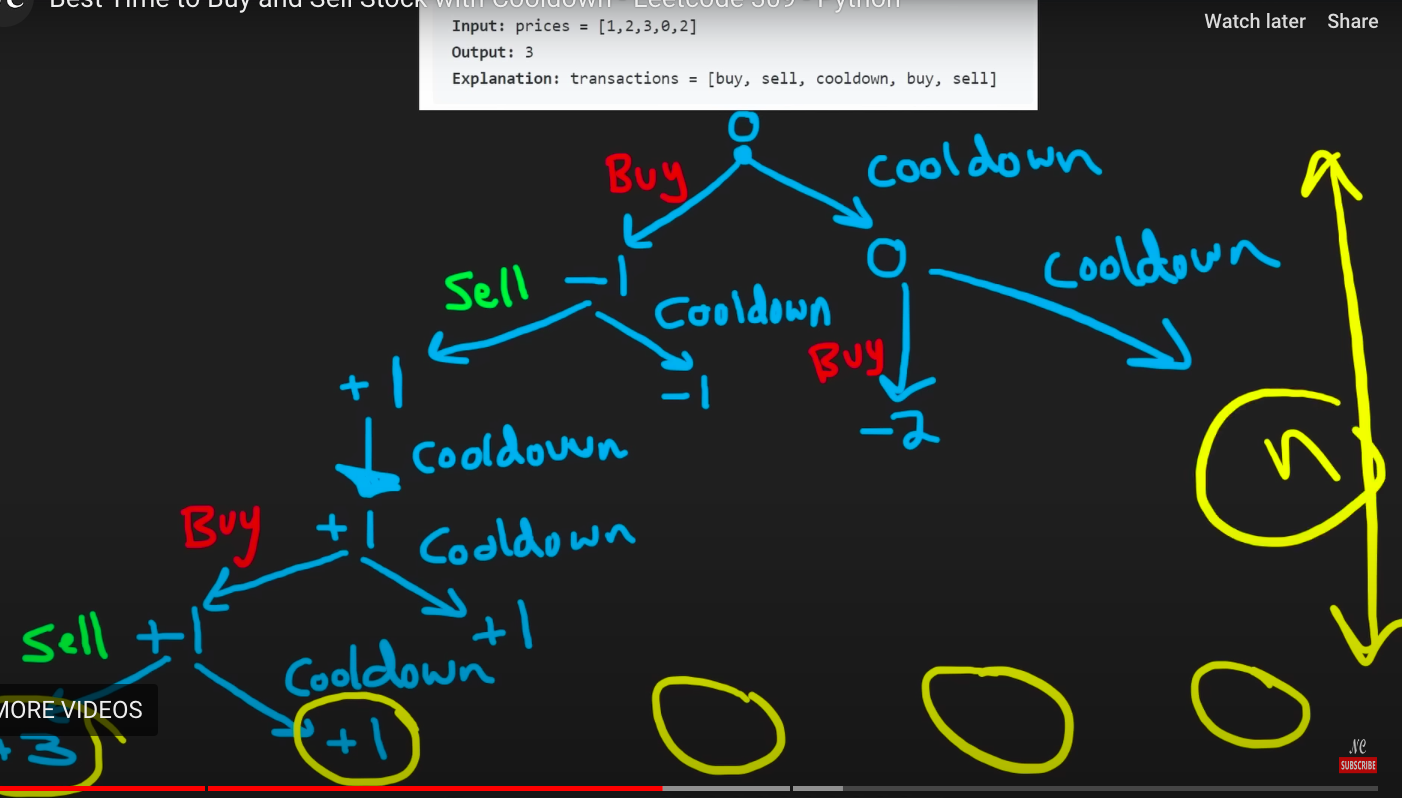 Best Time to Buy and Sell Stock with Cooldown - Leetcode 309 - Python
Watch later Share
Input: prices = [1,2,3,0,2]
Output: 3
Explanation: transactions = [buy, sell, cooldown, buy, sell]
0
Buy
Cooldown
Sell
-1
Cooldown
0
Cooldown
+1
-1
Buy
-2
Cooldown
n
Buy
+1
Cooldown
Sell
+1
+1
Cooldown
MORE VIDEOS
+3
+1
NC
SUBSCRIBE